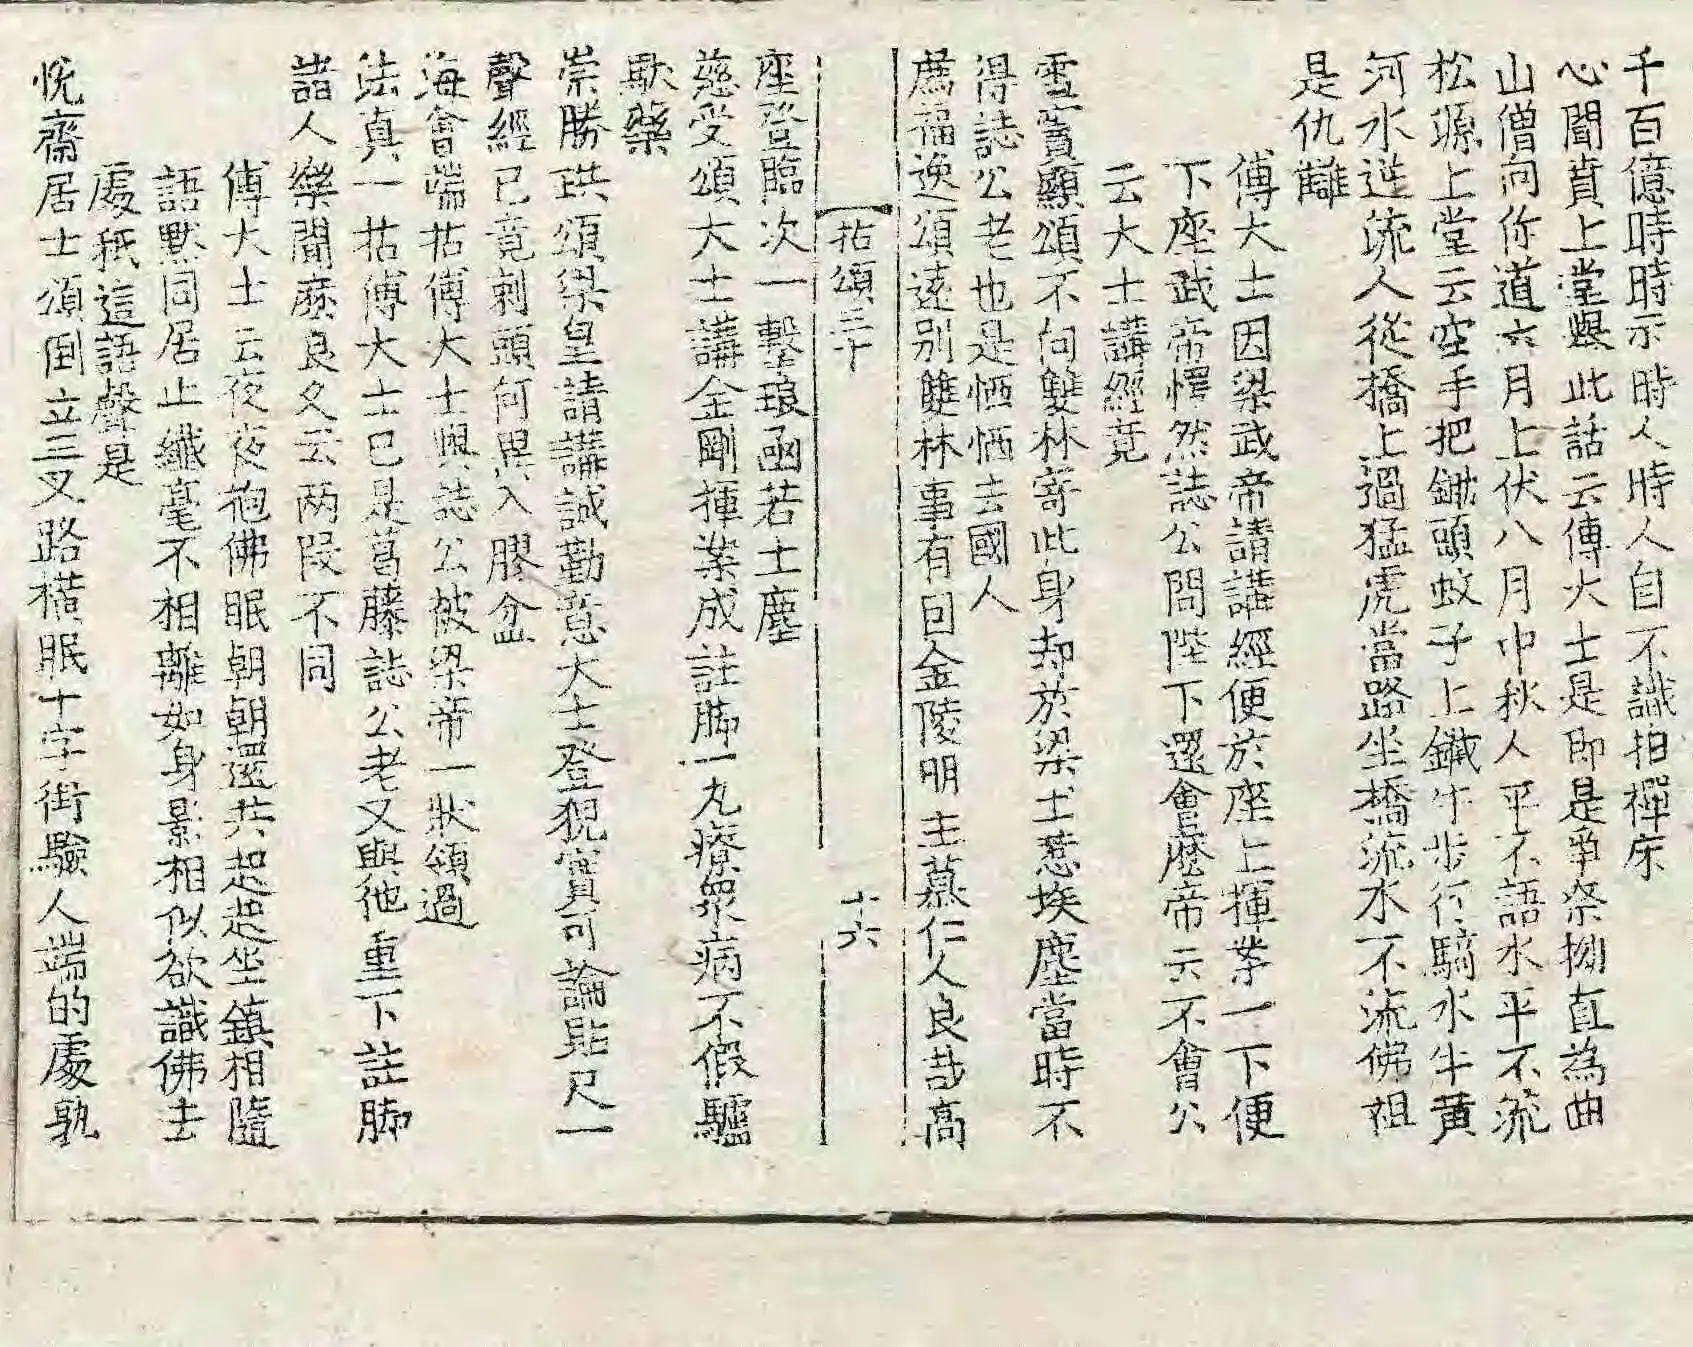 千百億時時示時人時人自不識拍禪床
心聞賁上堂擧此話云傅大士是即是爭柰拗直為曲
山僧向你道六月上伏八月中秋人平不語水平不流
松源上堂云空手把鋤頭蚊子上鐵牛步行騎水牛黃
河水逆流人從橋上過猛虎當路坐橋流水不流佛祖
是仇讎
傅大士因梁武帝請講經便於座上揮案一下便
下座武帝愕然誌公問陛下還會麽帝云不會公
云大士講經竟
雪竇顯頌不向雙林寄此身却於梁土惹埃塵當時不
得誌公老也是恓恓去國人
薦福逸頌遠別雙林事有回金陵明主慕仁人良哉高
拈頌三十 十六
座登臨次一擊琅函若土塵
慈受頌大士講金剛揮案成註脚一丸療衆病不假驢
馱藥
崇勝珙頌梁皇請講誠勤意大士登猊實可論貼尺一
聲經已竟剌頭何異入膠盆
海會端拈傅大士與誌公被梁帝一狀領過
法真一拈傅大士已是葛藤誌公老又與他重下註脚
諸人樂聞麽良久云兩段不同
傅大士云夜夜抱佛眠朝朝還共起起坐鎮相隨
語默同居止纖毫不相離如身影相似欲識佛去
處秖這語聲是
悅齋居士頌倒立三叉路橫眠十字街驗人端的處孰